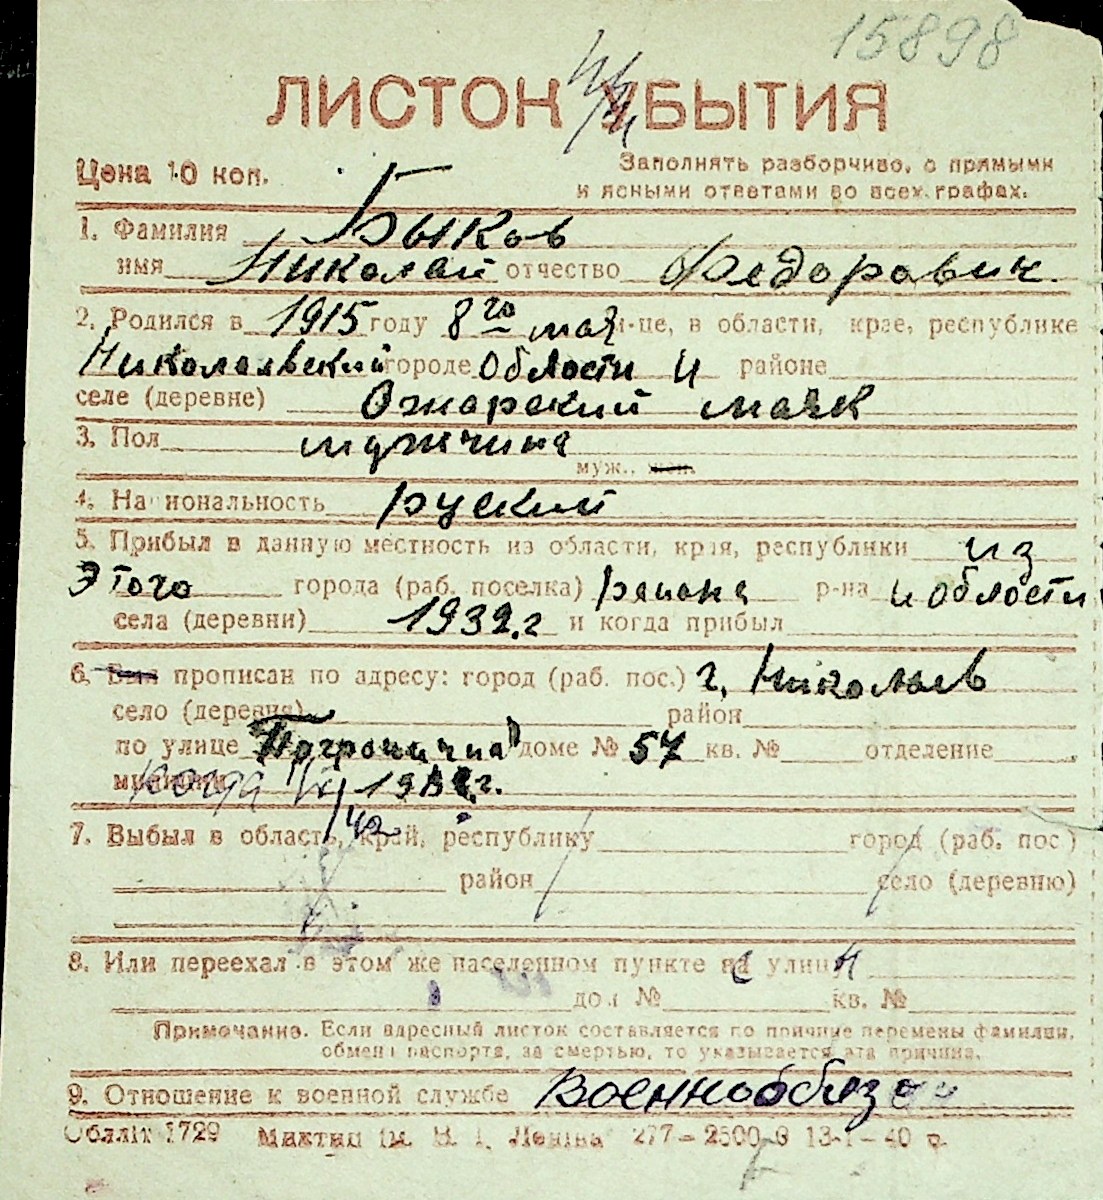 15898
ЛИСТОК УБЫТИЯ
Цена 10 коп.
Заполнять разборчиво, с прямыми
и ясными ответами во всех графах.
1. Фамилия Быков
имя Николай отчество Федоравич
2. Родился в 1915 году 8го мая м-це, в области, крае, республике
Николаевский городе области и районе
селе (деревне) Ожарский маяк
3. Пол мужчина
муж., жен.
4. Национальность руский
5. Прибыл в данную местность из области, края, республики из
этого города (раб. поселка) раиона р-на и области
села (деревни) 1932.г и когда прибыл
6. Был прописан по адресу: город (раб. пос.) г. Николаев
село (деревня) район
по улице Погранична доме № 57 кв. № отделение
милиции когда
7. Выбыл в область, край, республику город (раб. пос.)
район село (деревню)
8. Или переехал в этом же населенном пункте на улицу
дом № кв. №
Примечание. Если адресный листок составляется по причине перемены фамилии,
обмена паспорта, за смертью, то указывается эта причина.
9. Отношение к военной службе Военнообязан
Обллiт 1729 ім. В. І. Леніна 277—2500 13-1-40 г.